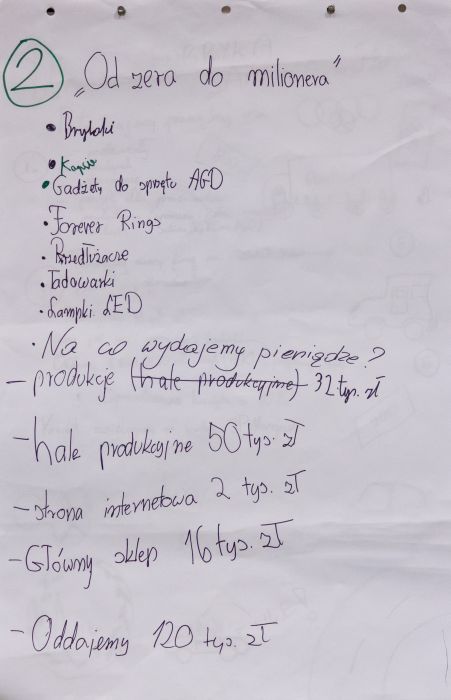 2 „Od zera do milionera"
• Breloki
• Kapcie
• Gadżety do sprzętu AGD
• Forever Rings
• Przedłużacze
• Ładowarki
• Lampki LED
• Na co wydajemy pieniądze?
– produkcje (hale produkcyjne) 32 tyś. zł
– hale produkcyjne 50 tyś. zł
– strona internetowa 2 tyś. zł
– Główny sklep 16 tyś. zł
– Oddajemy 120 tyś. zł